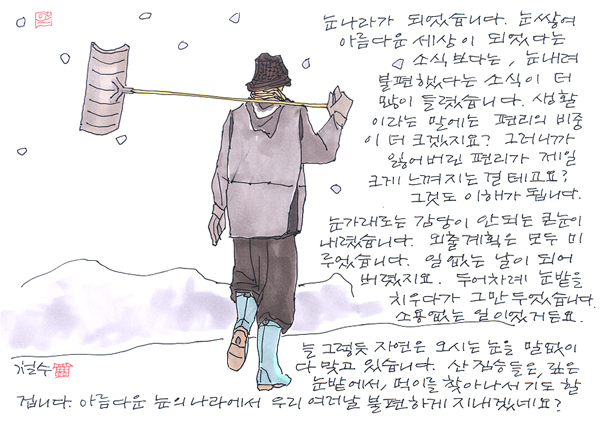 눈나라가 되었습니다. 눈쌓여
아름다운 세상이 되었다는
소식보다는, 눈내려
불편했다는 소식이 더
많이 들렸습니다. 생활
이라는 말에는 편리의 비중
이 더 크겠지요? 그러니까
잃어버린 편리가 제일
크게 느껴지는 결 테고요?
그것도 이해가 됩니다.
눈가래로는 감당이 안되는 큰눈이
내렸습니다. 외출계획은 모두 미
루었습니다. 일 없는 날이 되어
버렸지요. 두어차례 눈밭을
치우다가 그만두었습니다.
소용없는 일이었거든요.
늘 그렇듯 자연은 오시는 눈을 말없이
다 맞고 있습니다. 산짐승들은, 깊은
눈밭에서, 먹이를 찾아나서기도 할
겁니다. 아름다운 눈의 나라에서 우리 여러날 불편하게 지내겠네요?
철수